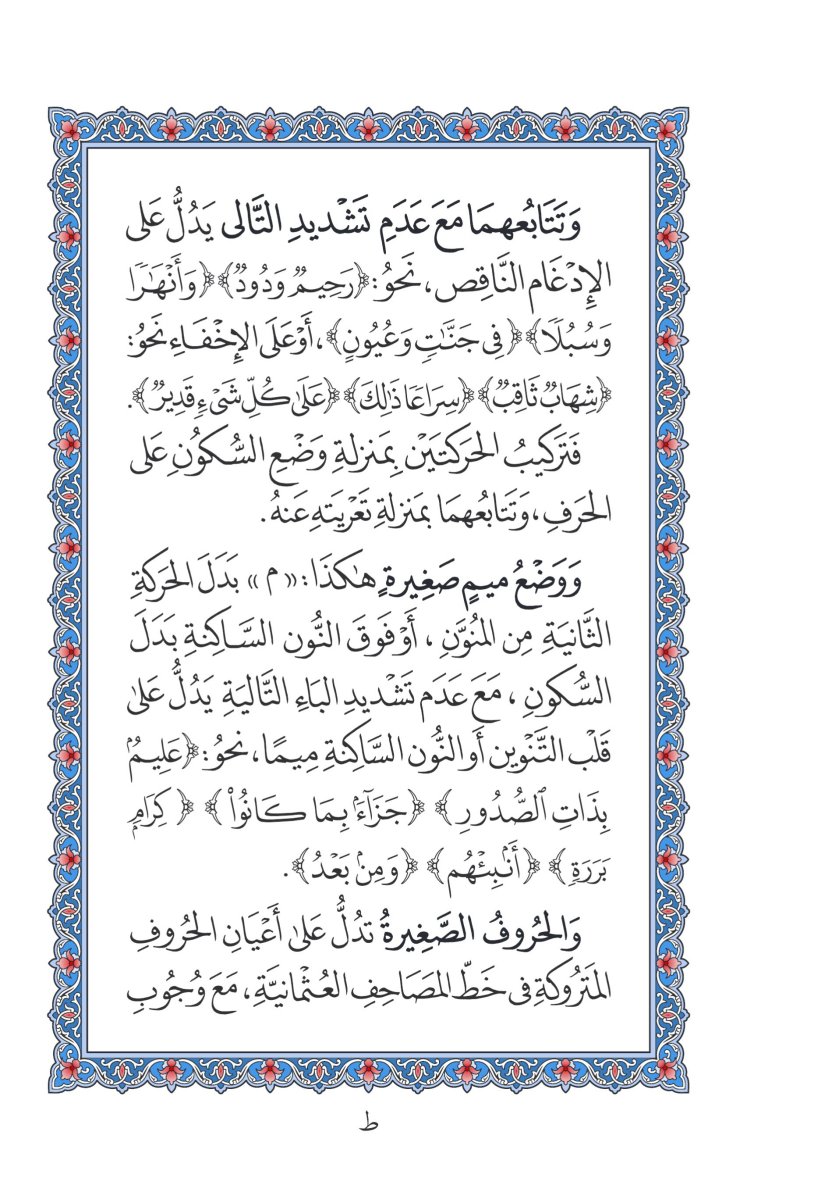 وَتَتَابُعهمَا مَعَ عَدَمِ تَشْديدِ التَّالى يَدُلُّ عَلى
الإِدْغَام النَّاقِص، نَحوُ: ﴿رَحِيمٞ وَدُودٞ﴾ ﴿وَأَنۡهَٰرٗا
وَسُبُلٗا﴾ ﴿فِى جَنَّٰتٖ وَعُيُونٍ﴾، أَوْ عَلَى الإِخْفَاءِ نَحوُ:
﴿شِهَابٞ ثَاقِبٞ﴾ ﴿سِرَاعٗا ذَٰلِكَ﴾ ﴿عَلَىٰ كُلِّ شَىۡءٖ قَدِيرٞ﴾.
فَتَركيبُ الحَركتَيْن بِمَنزلةِ وَضْعِ السُّكوُنِ عَلى
الحَرفِ، وَتَتَابُعهمَا بمَنزلةِ تَعْريَتهِ عَنهُ.
وَوَضْعُ ميمٍ صَغِيرةٍ هٰكذَا: «م» بَدَلَ الحَركةِ
الثَّانيَةِ مِن المُنوَّنِ، أَوْ فَوقَ النُّون السَّاكِنةِ بَدَلَ
السُّكونِ، مَعَ عَدَم تَشْديدِ البَاءِ التَّاليَةِ يَدُلُّ عَلىٰ
قَلْب التَّنْوين أَو النُّون السَّاكِنةِ مِيمًا، نحوُ: ﴿عَلِيمُۢ
بِذَاتِ ٱلصُّدُورِ﴾ ﴿جَزَآءَۢ بِمَا كَانُواْ﴾ ﴿كِرَامِۭ
بَرَرَةٖ﴾ ﴿أَنۢبِئۡهُم﴾ ﴿وَمِنۢ بَعۡدُ﴾.
وَالحُروفُ الصَّغِيرةُ تدُلُّ عَلىٰ أَعْيَانِ الحُروفِ
المَتَروُكةِ فى خَطِّ المصَاحِفِ العُثمْانيَّةِ، مَعَ وُجُوبِ
ط